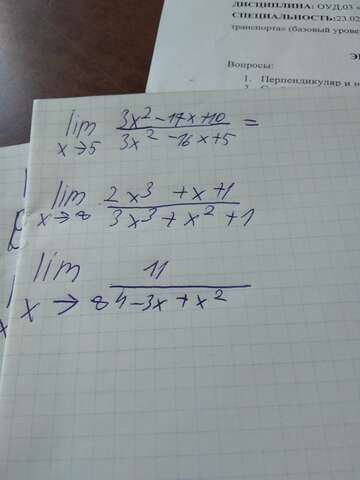 ДИСЦИПЛИНА: ОУД.03 «
СПЕЦИАЛЬНОСТЬ:23.02
транспорта» (базовый уровe
Вопросы:
1. Перпендикуляр и н
lim 3x² - 17x + 10 / 3x² - 16x + 5 =
x → 5
lim 2x³ + x + 1 / 3x³ + x² + 1
x → 8
lim 11 / 4 - 3x + x²
x → 8